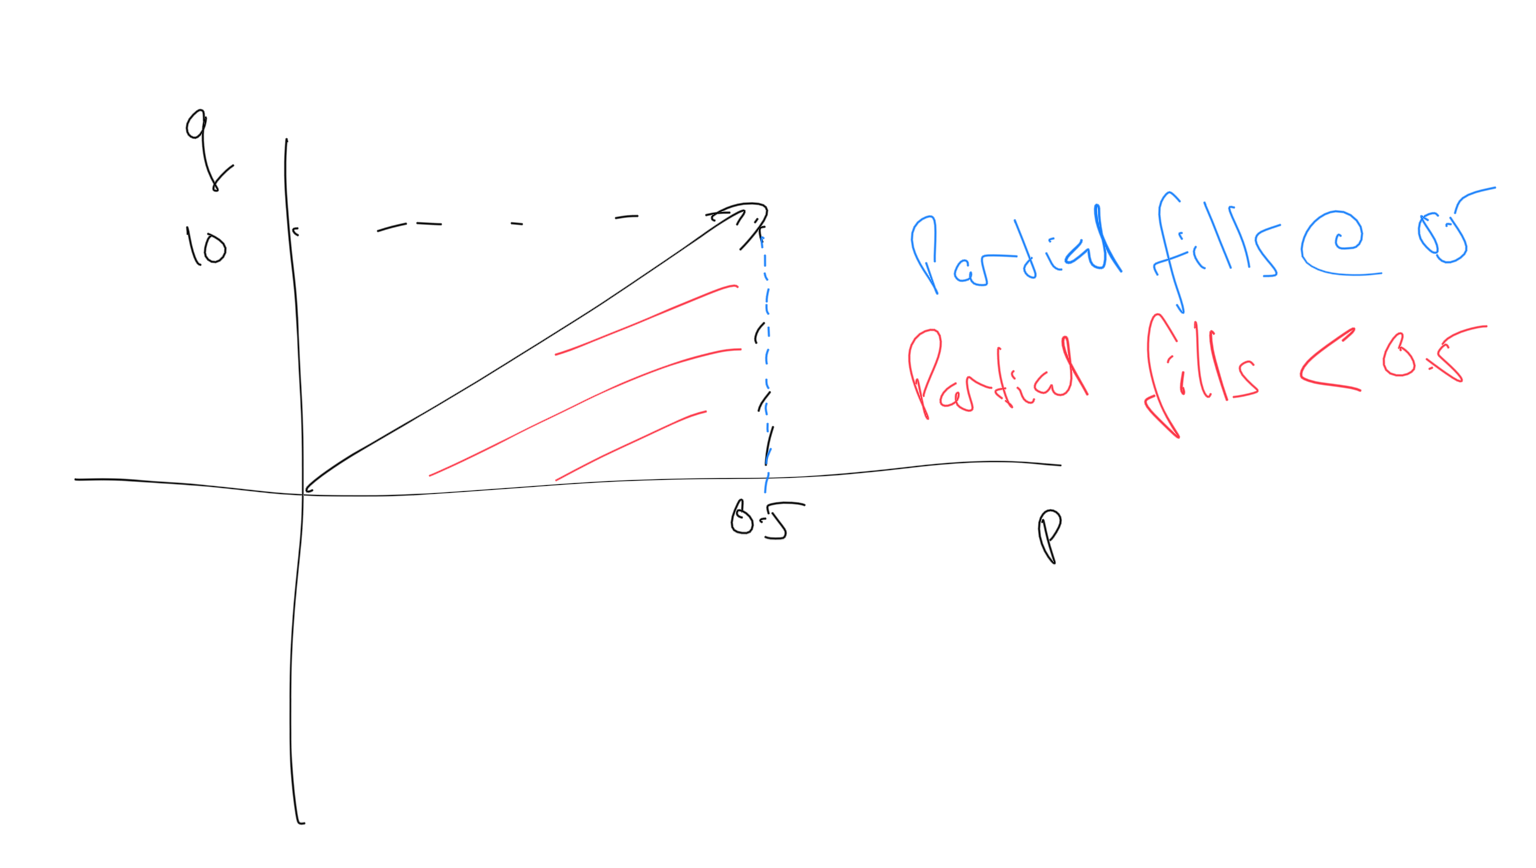 q
10
Partial fills @ 0.5
Partial fills < 0.5
0.5
P